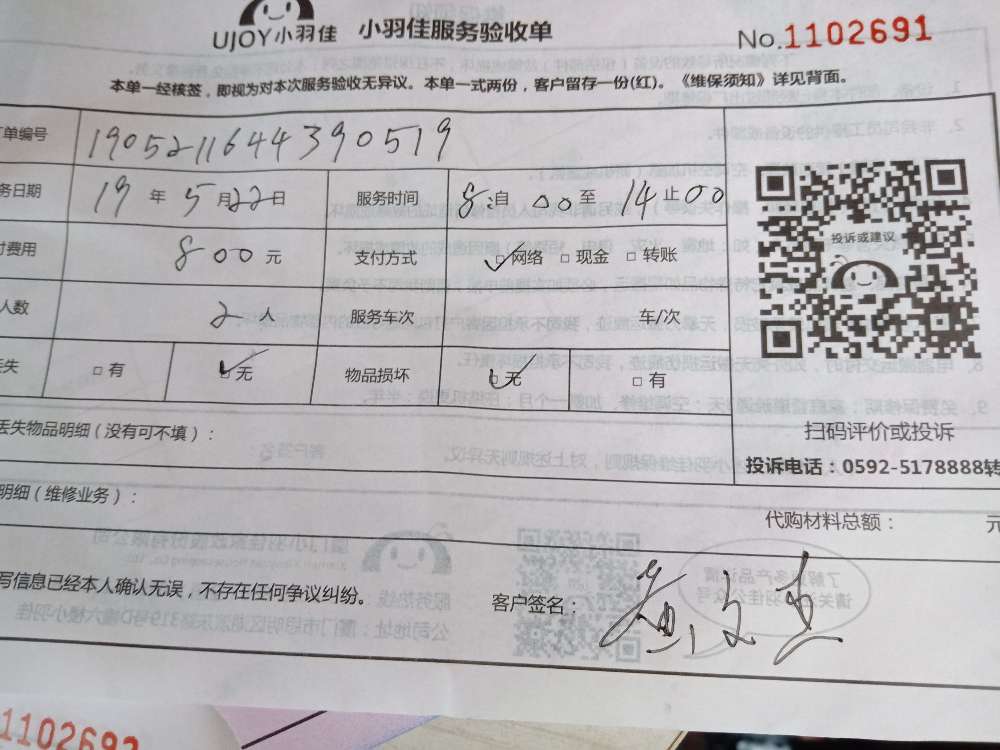 UJOY小羽佳 小羽佳服务验收单
No.1102691
本单一经核签，即视为对本次服务验收无异议。本单一式两份，客户留存一份(红)。《维保须知》详见背面。
单编号 1905211644390519
务日期 19 年 5 月 22 日 服务时间 8:自 00 至 14 止 00
费用 800 元 支付方式 网络 现金 转账
投诉或建议
人数 2 人 服务车次 车/次
丢失 有 无 物品损坏 无 有
丢失物品明细（没有可不填）：
扫码评价或投诉
投诉电话：0592-5178888转
明细（维修业务）：
代购材料总额： 元
写信息已经本人确认无误，不存在任何争议纠纷。
客户签名：
1102692